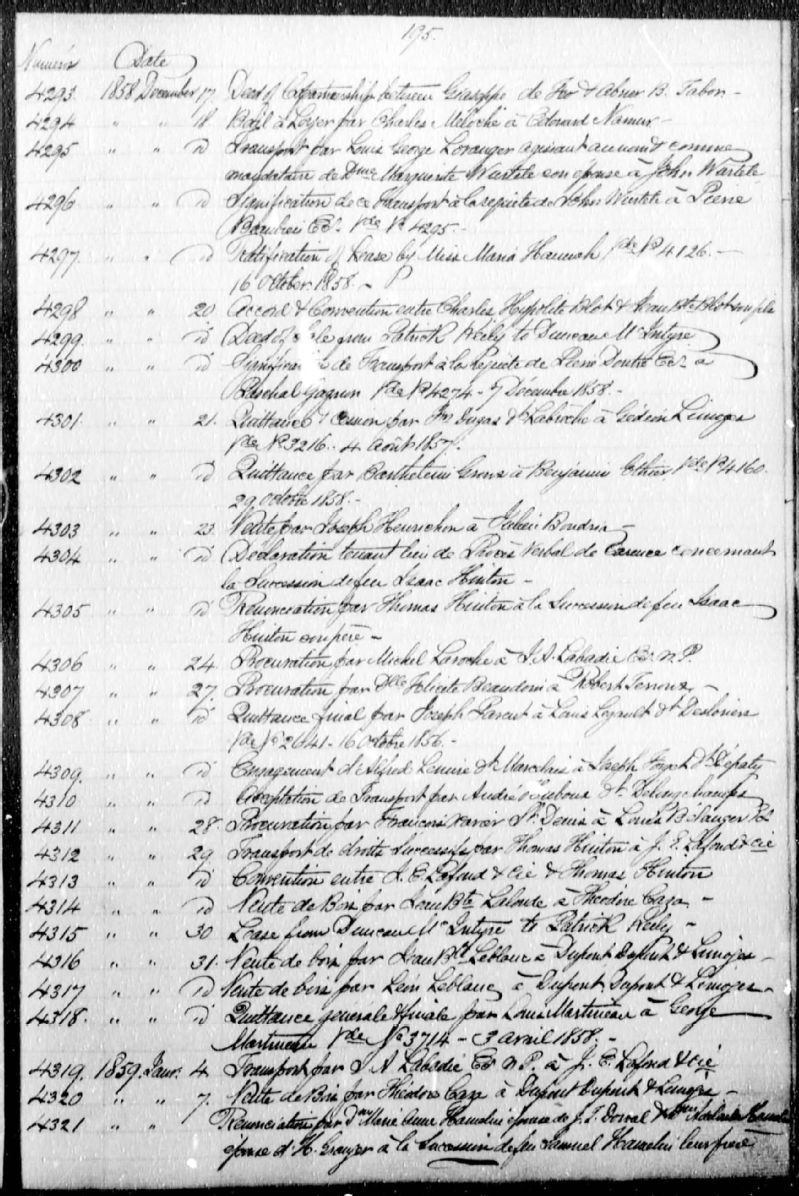 195.
Numéro Date
4293 1858 December 17 Deed of Copartnership between Giuseppe de & Abner B. Tabor -
4294 " " 18 Bail à Loyer par Charles Meloche à Edouard Namur -
4295 " " id Transport par Louis George Loranger agissant au nom & comme
mandataire de Dme Marguerite Wurtele son épouse à John Wurtele
4296 " " id Signification de ce Transport à la requête de John Wurtele à Pierre
Beaubien Ecr. Vde No 4295. -
4297 " " id Ratification of Lease by Miss Maria Hannah Vde No 4126. -
16 October 1858. -
4298 " " 20 Accord & Convention entre Charles Hypolite Blot & Jean Bte Blot son fils
4299. " " id Deed of Sale from Patrick Keely to Duncan McIntyre
4300 " " id Signification de Transport à la Requête de Pierre Doutre Ecr à
Paschal Gagnon Vde No 4274 - 7 Décembre 1858. -
4301 " " 21. Quittance & cession par Dugas dt Labrèche à Gédéon Limoges
Vde No 3216. 4 Août 1857.
4302 " " id Quittance par Barthelemi à Benjamin Ethier, Vde No 4160.
29 Octobre 1858. -
4303 " " 23. Vente par Joseph Heurichon à Julien Boudria -
4304 " " id Déclaration tenant lieu de Procès Verbal de Carence concernant
la Succession de feu Isaac Hinton -
4305 " " id Renonciation par Thomas Hinton à la Succession de feu Isaac
Hinton son père -
4306 " " 24. Procuration par Michel Laroche à J. A. Labadie Ecr N.P.
4307 " " 27. Procuration par Dlle Felicité Beaudoin à Robert -
4308 " " id Quittance final par Joseph Parent à Louis Legault dt Deslorier
Vde No 2641 - 16 Octobre 1856. -
4309. " " id Engagement d'Alfred Lemire dt Marsolais à Joseph
4310 " " id Acceptation de Transport par André dt Delongchamps
4311 " " 28. Procuration par François Xavier St. Denis à Louis Bélanger
4312 " " 29 Transport de droits Successifs par Thomas Hinton à J. E. Lafond & Cie
4313 " " id Convention entre J. E. Lafond & Cie & Thomas Hinton
4314 " " id Vente de Bois par Jean Bte Lalonde à Théodore Caza -
4315 " " 30 Lease from Duncan McIntyre to Patrick Keely -
4316 " " 31. Vente de bois par Jean Bte Leblanc à Dupont Dupont & Limoges -
4317 " " id Vente de bois par Léon Leblanc à Dupont Dupont & Limoges -
4318. " " id Quittance générale & finale par Louis Martineau à George
Martineau Vde No 3714 - 3 avril 1858. -
4319. 1859. Janr. 4. Transport par J A Labadie Ecr N.P. à J. E. Lafond & Cie
4320 " " 7. Vente de Bois par Théodore Caza à Dupont Dupont & Limoges -
4321 " " Renonciation par Dme Marie Anne Hamelin épouse de J. T. Dorval & Dme Hamelin
épouse d'H. Granger à la Succession de feu Samuel Hamelin leur frère